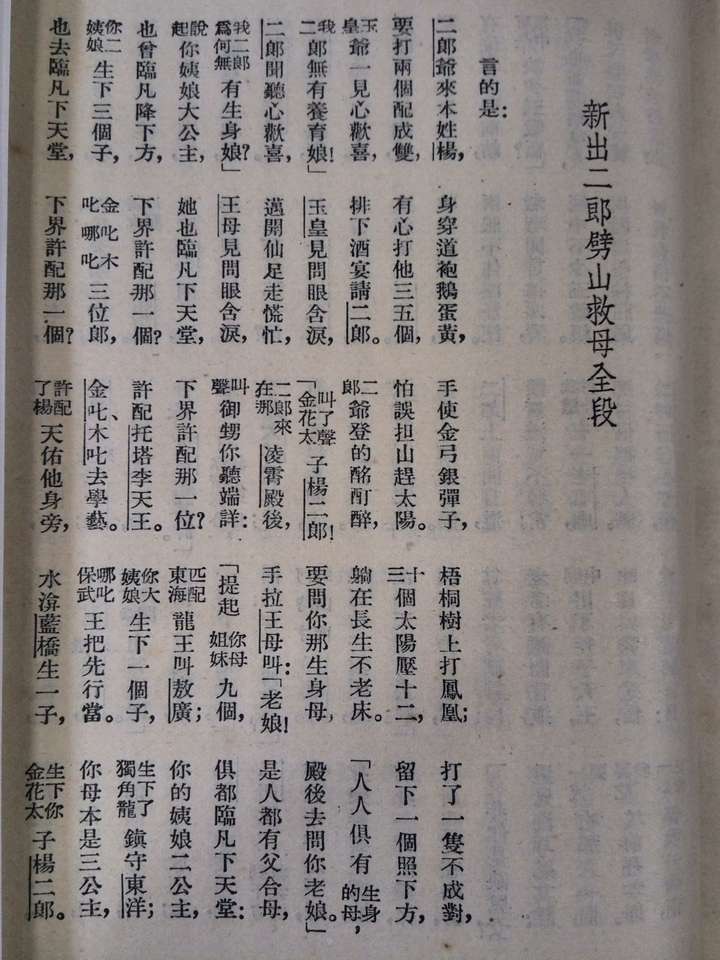 新出二郎劈山救母全段
言的是:
二郎爺來本姓楊,身穿道袍鵝蛋黃,手使金弓銀彈子,梧桐樹上打鳳凰;打了一隻不成對,
要打兩個配成雙,有心打他三五個,怕誤担山趕太陽。十三個太陽壓十二,留下一個照下方,
玉皇爺一見心歡喜,排下酒宴請二郎。二郎爺登的酩酊醉,躺在長生不老床。「人人俱有生身的母,
我二郎無有養育娘!」玉皇見問眼含淚,「叫了聲金花太子楊二郎!要問你那生身母,殿後去問你老娘。」
二郎聞聽心歡喜,邁開仙足走慌忙,二郎來在那凌霄殿後,手拉王母叫:「老娘!是人都有父合母,
我二郎為何無有生身娘?」王母見問眼含淚,叫聲御甥你聽端詳:「提起你母姐妹九個,俱都臨凡下天堂:
說起你姨娘大公主,她也臨凡下天堂,下界許配那一位?匹配東海龍王叫敖廣;你的姨娘二公主,
也曾臨凡降下方,下界許配那一個?許配托塔李天王。你大姨娘生下一個子,生下了獨角龍鎮守東洋;
你二姨娘生下三個子,金叱木叱哪叱三位郎,金叱、木叱去學藝。哪叱保武王把先行當。你母本是三公主,
也去臨凡下天堂,下界許配那一個?許配了楊天佑他身旁,水渰藍橋生一子,生下你金花太子楊二郎。